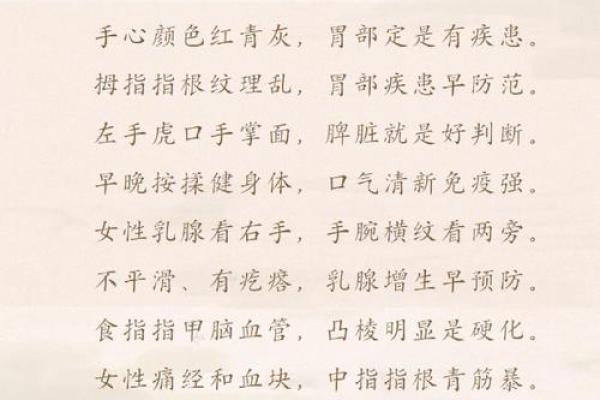 手心颜色红青灰，胃部定是有疾患。
拇指指根纹理乱，胃部疾患早防范。
左手虎口手掌面，脾脏就是好判断。
早晚按揉健身体，口气清新免疫强。
女性乳腺看右手，手腕横纹看两旁。
不平滑、有疙瘩，乳腺增生早预防。
食指指甲脑血管，凸棱明显是硬化。
女性痛经和血块，中指指根青筋暴。